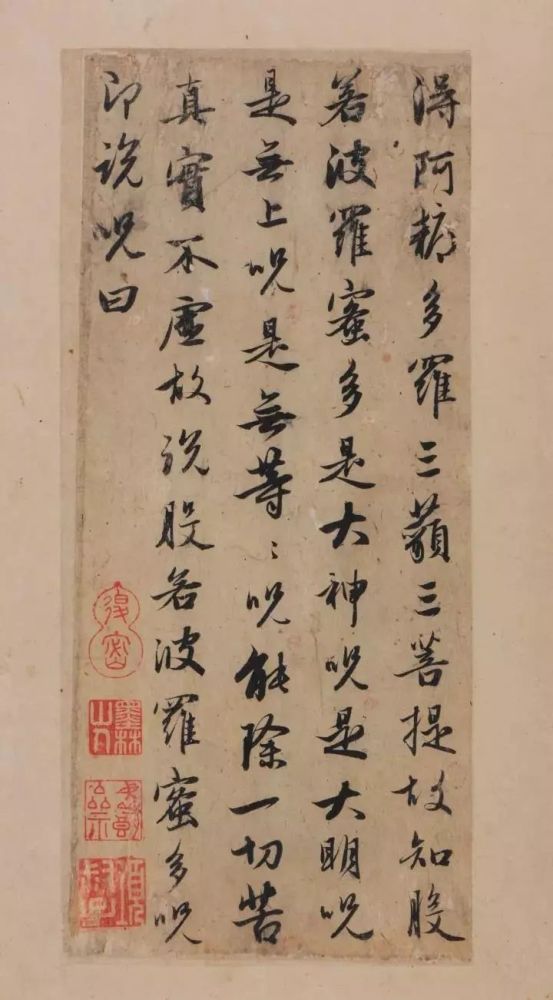 得阿耨多羅三藐三菩提故知般
若波羅蜜多是大神呪是大明呪
是無上呪是無等〻呪能除一切苦
真實不虛故說般若波羅蜜多呪
即說呪曰
墨林